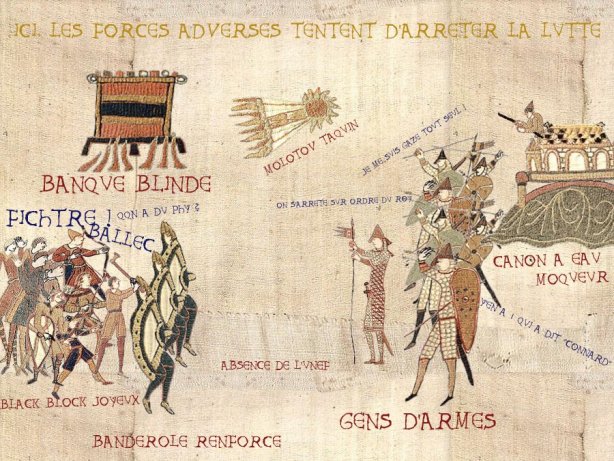 ICI LES FORCES ADVERSES TENTENT D'ARRETER LA LVTTE
BANQVE BLINDE
MOLOTOV TAQVIN
JE ME SVIS GAZE TOVT SEVL !
FICHTRE !
QQN A DV PHY ?
BALLEC
ON SARRETE SVR ORDRE DV ROY
CANON A EAV
MOQVEVR
YEN'A 1 QVI A DIT "CONNARD"
ABSENCE DE L'VNEF
BLACK BLOCK JOYEVX
BANDEROLE RENFORCE
GENS D'ARMES